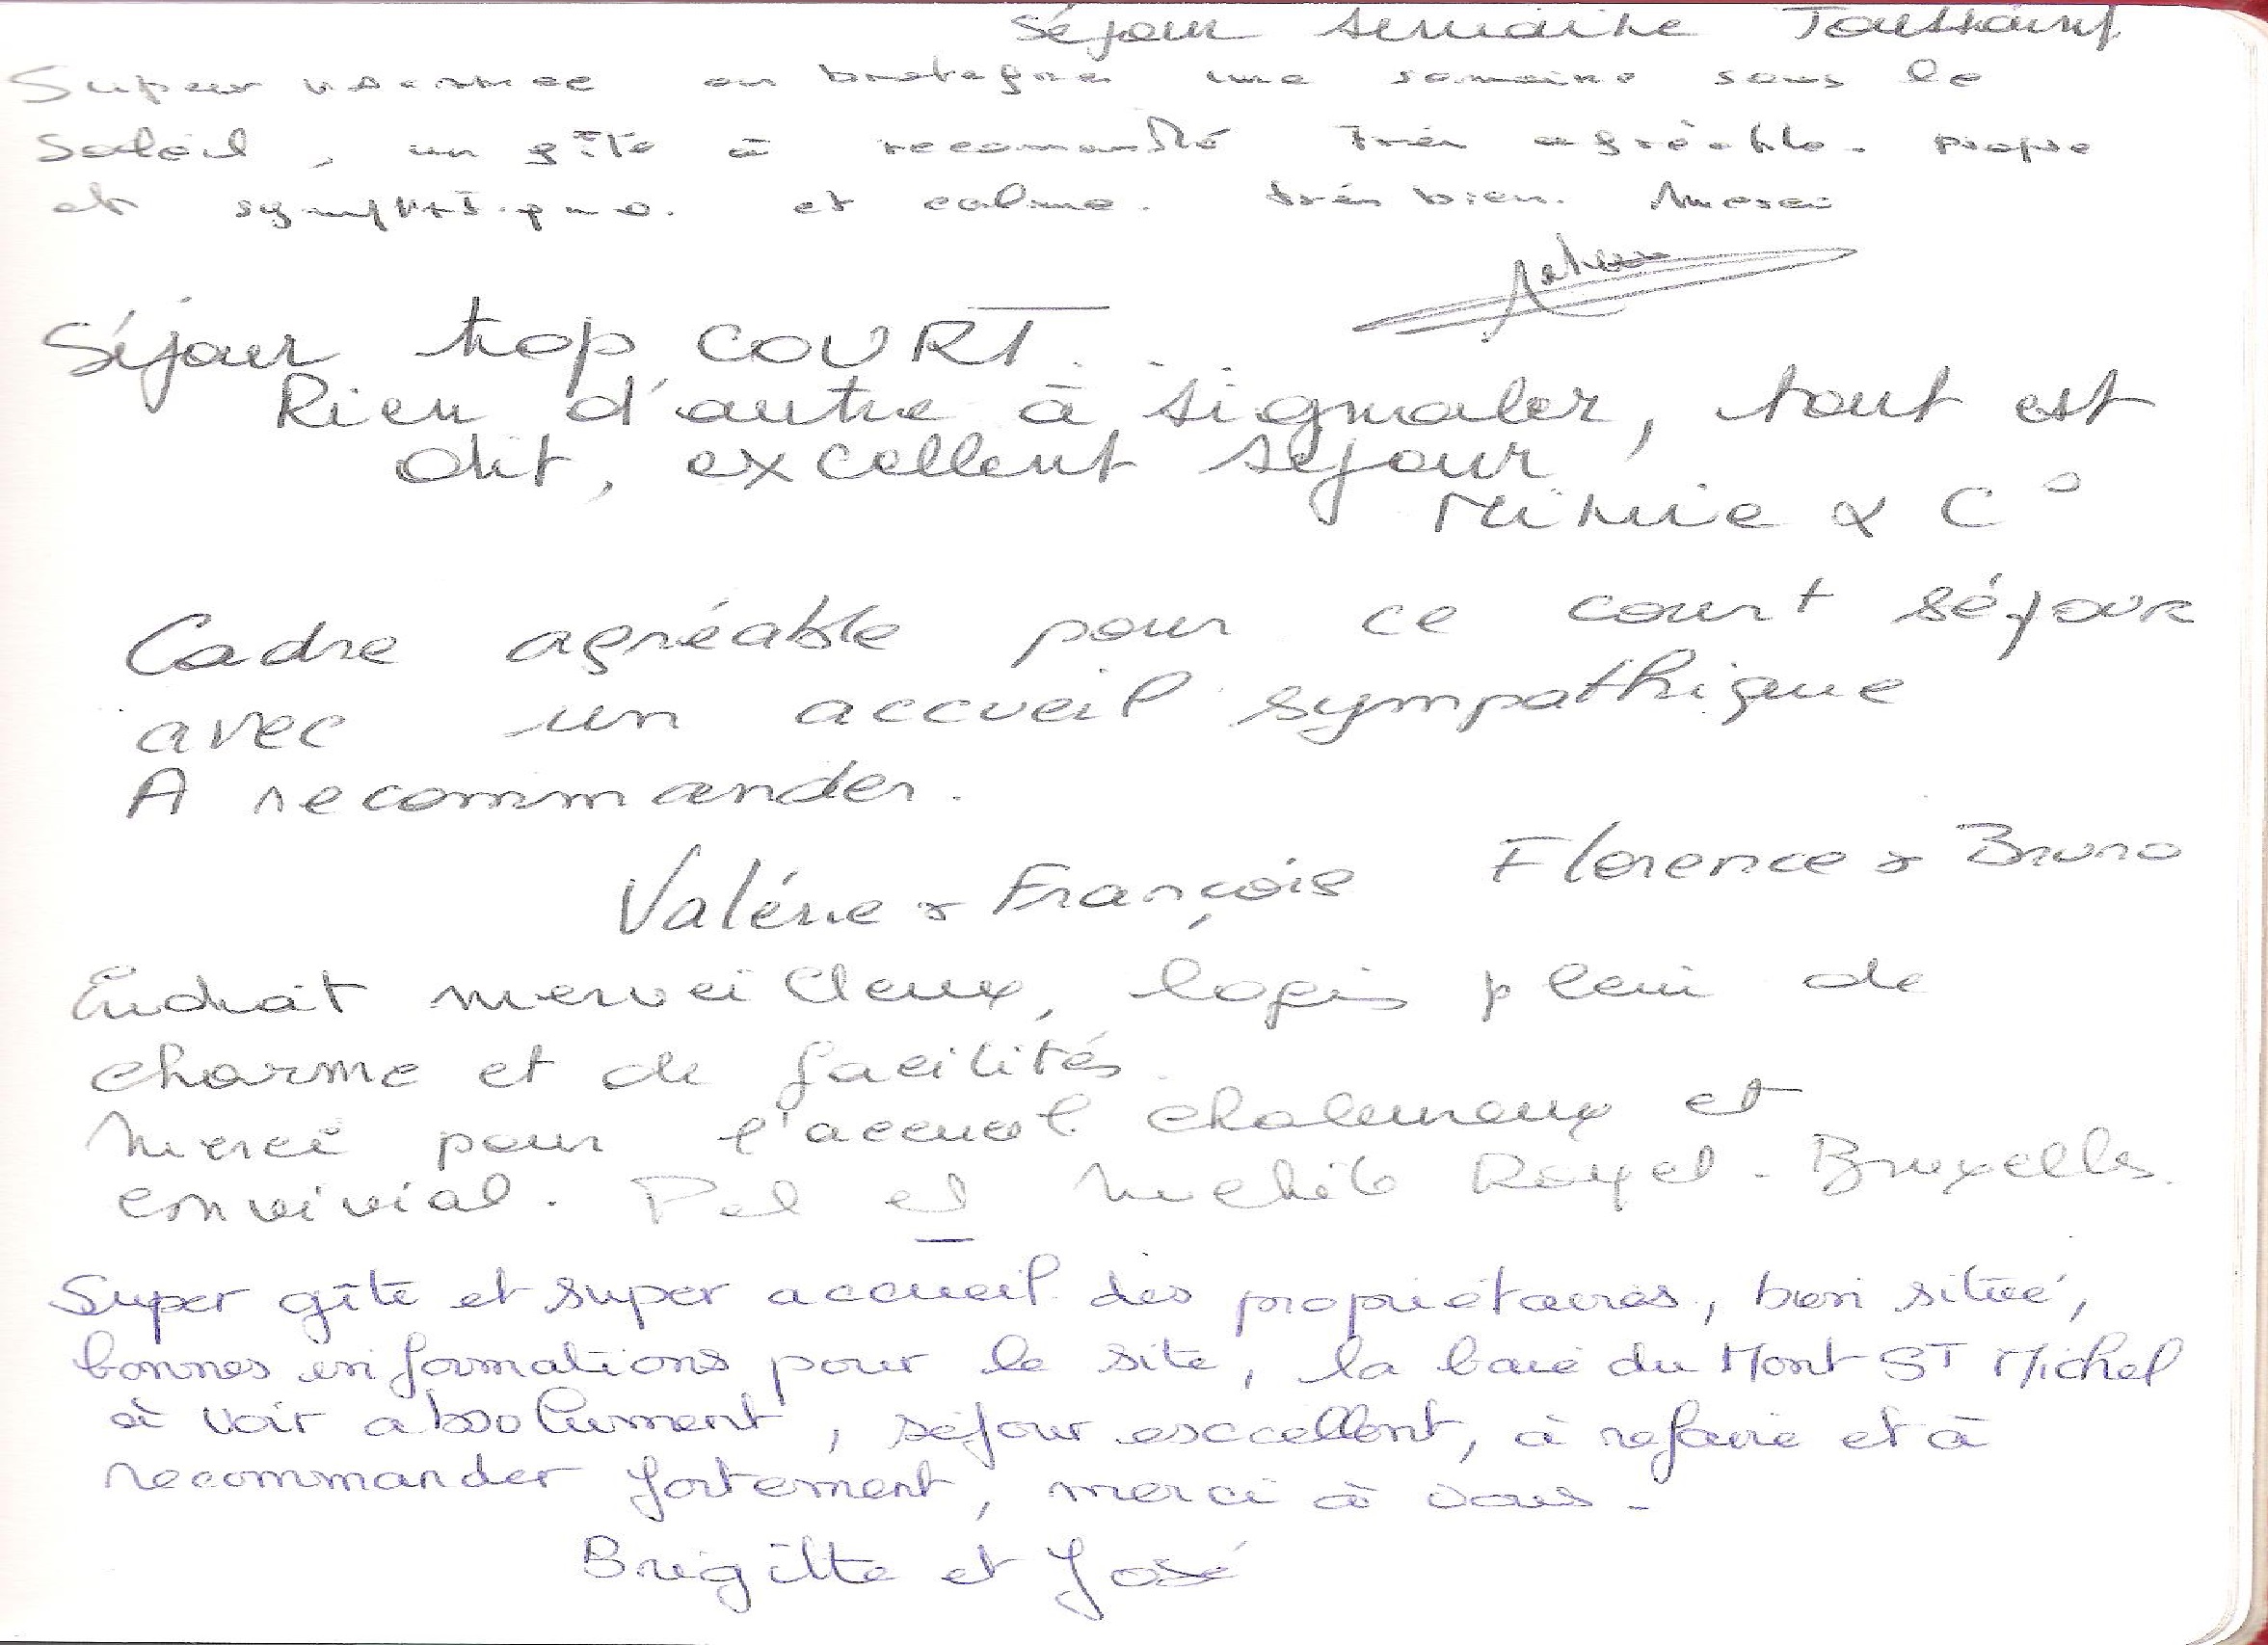 Séjour semaine Toussaint
Super vacance en bretagne une semaine sous le
Soleil, un gîte à recomandé très agréable. propre
et sympatique. et calme. très bien. Merci
Séjour trop COURT.
Rien d'autre à signaler, tout est
dit, excellent séjour
Mimie & C°
Cadre agréable pour ce court séjour
avec un accueil sympathique
A recommander.
Valérie & François Florence & Bruno
Endroit merveilleux, logis plein de
charme et de facilités.
Merci pour l'accueil chaleureux et
convivial. et Michèle - Bruxelles.
Super gîte et super accueil des propriétaires, bien situé,
bonnes informations pour le site, la baie du Mont ST Michel
à voir absolument, séjour excellent, à refaire et à
recommander fortement, merci à vous.
Brigitte et José